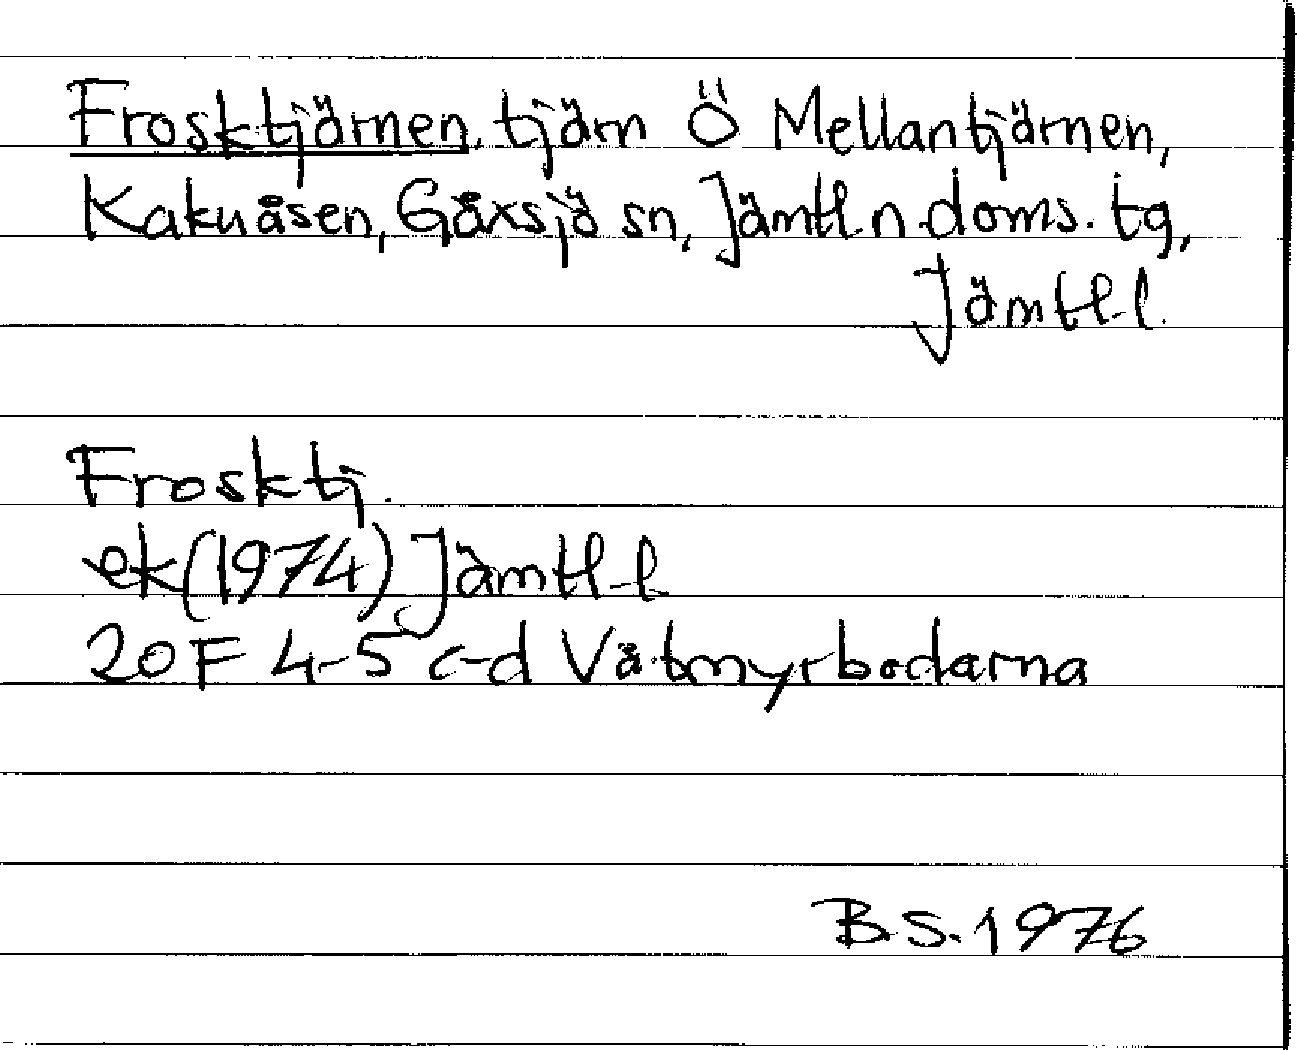 Frosktjärnen, tjärn Ö Mellantjärnen,
Kakuåsen, Gåxsjö sn, Jämtl. n. doms. tg,
Jämtl. l.
Frosktj.
ek (1974) Jämtl. l
20 F 4-5 c-d Våtmyrbodarna
B.S. 1976